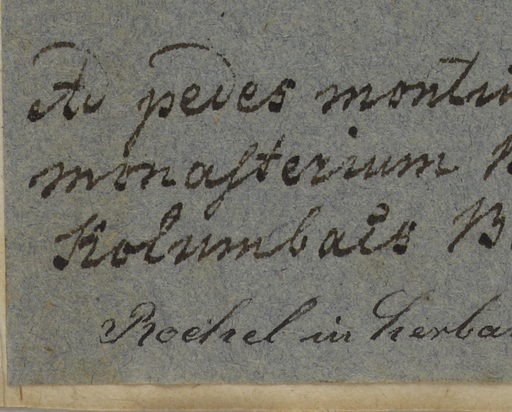 Ad pedes montiu
monasterium
Kolumbačs B
Rochel in herba